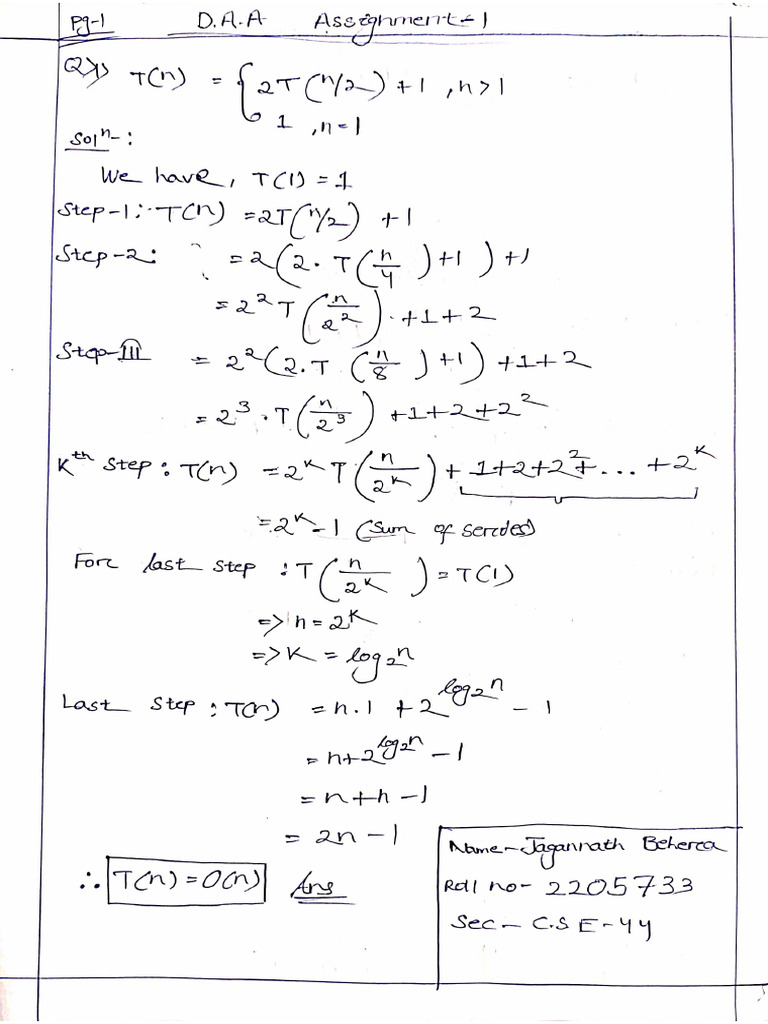 Pg-1 D.A.A Assignment-1
Q>1> T(n) = { 2T(n/2) + 1 , n>1
1 , n=1
Solⁿ-:
We have, T(1) = 1
Step-1:- T(n) = 2T(n/2) + 1
Step-2: = 2(2. T(n/4) + 1) + 1
= 2² T(n/2²) . + 1 + 2
Step-III = 2²(2.T (n/8) + 1) + 1 + 2
= 2³ . T(n/2³) + 1 + 2 + 2²
Kᵗʰ Step : T(n) = 2ᴷ T(n/2ᴷ) + 1 + 2 + 2² + ... + 2ᴷ
= 2ᴷ - 1 (Sum of serdes)
For last step : T(n/2ᴷ) = T(1)
=> n = 2ᴷ
=> K = log₂n
Last Step : T(n) = n.1 + 2^log₂n - 1
= n + 2^log₂n - 1
= n + n - 1
= 2n - 1
∴ T(n) = O(n) Ans
Name - Jagannath Behera
Roll no - 2205733
Sec - C.S E - 44